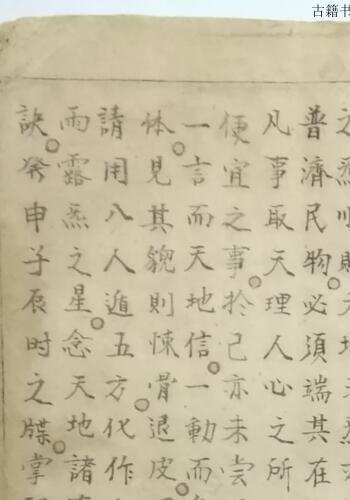 古籍书
普濟民物必須端其在
凡事取天理人心之所
便宜之事於己亦未尝
一言而天地信一動而
体見其貌則悚骨退皮
請用八人遁五方化作
雨露炁之星念天地諸
訣发申子辰时之牒掌